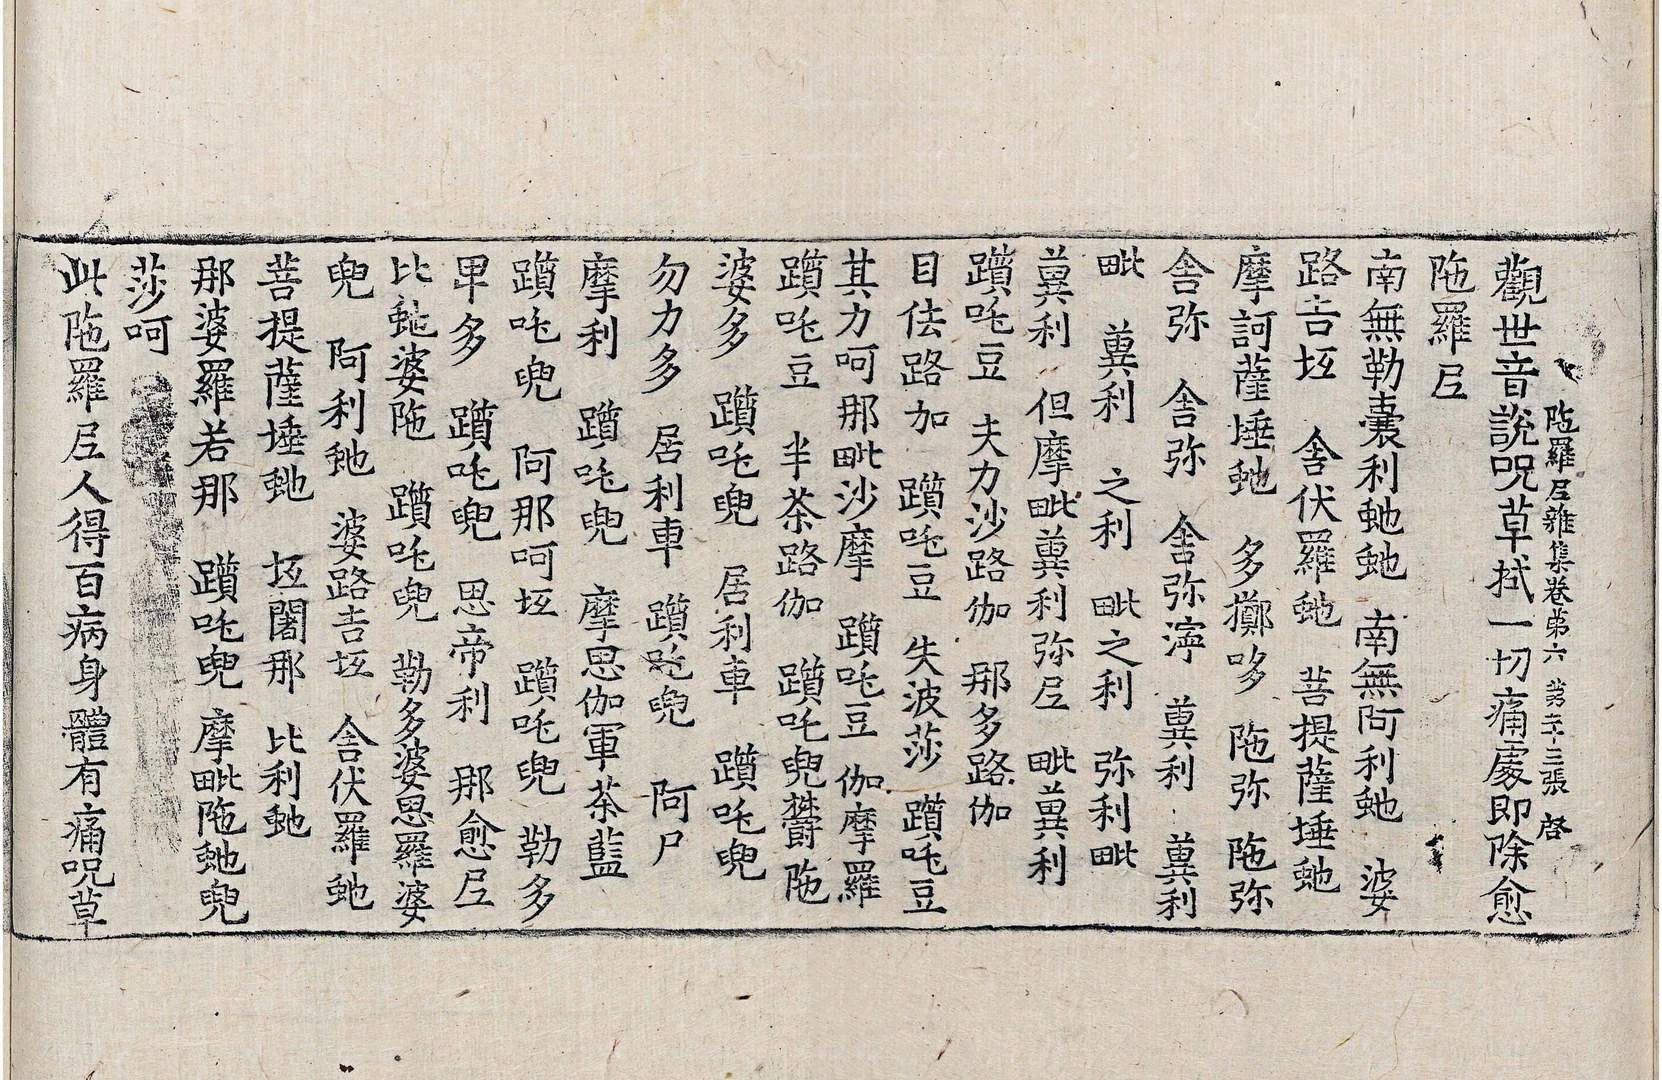 陁羅尼雜集卷第六 第二十三張 啓
觀世音說呪草拭一切痛處即除愈
陁羅尼
南無勒囊利虵虵 南無阿利虵 婆
路吉坘 舍伏羅虵 菩提薩埵虵
摩訶薩埵虵 多擲哆 陁弥 陁弥
舍弥 舍弥 舍弥濘 蕢利 蕢利
毗 蕢利 之利 毗之利 弥利毗
蕢利 但摩毗蕢利弥尼 毗蕢利
躓吒豆 夫力沙路伽 那多路伽
目佉路加 躓吒豆 失波莎 躓吒豆
其力呵那毗沙摩 躓吒豆 伽摩羅
躓吒豆 半茶路伽 躓吒兜欝陁
婆多 躓吒兜 居利車 躓吒兜
勿力多 居利車 躓吒兜 阿尸
摩利 躓吒兜 摩思伽軍茶藍
躓吒兜 阿那呵坘 躓吒兜 勒多
甲多 躓吒兜 思帝利 那愈尼
比虵婆陁 躓吒兜 勒多婆思羅婆
兜 阿利虵 婆路吉坘 舍伏羅虵
菩提薩埵虵 坘闍那 比利虵
那婆羅若那 躓吒兜 摩毗陁虵兜
莎呵
此陁羅尼人得百病身體有痛呪草